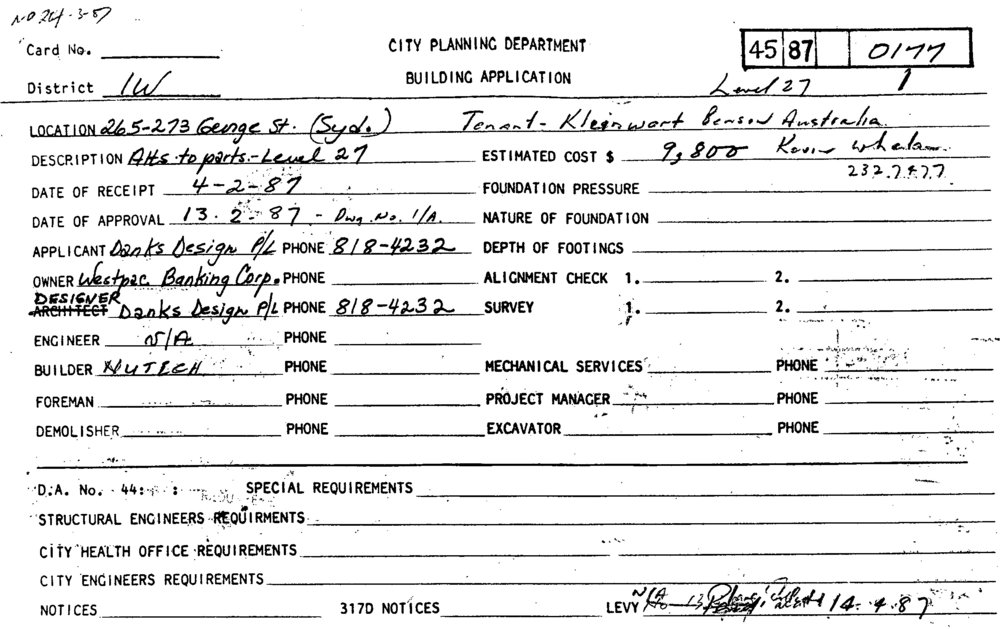 NO 24-3-87
Card No. CITY PLANNING DEPARTMENT 45 87 0177
District IW BUILDING APPLICATION Level 27 1
LOCATION 265-273 George St. (Syd.) Tenant - Kleinwort Benson Australia.
DESCRIPTION Alts to parts-Level 27 ESTIMATED COST $ 9,800 Kevin Whelan
DATE OF RECEIPT 4-2-87 FOUNDATION PRESSURE 232.7477
DATE OF APPROVAL 13.2.87 - Dwg. No. 1/A. NATURE OF FOUNDATION
APPLICANT Danks Design P/L PHONE 818-4232 DEPTH OF FOOTINGS
OWNER Westpac Banking Corp. PHONE ALIGNMENT CHECK 1. 2.
DESIGNER
ARCHITECT Danks Design P/L PHONE 818-4232 SURVEY 1. 2.
ENGINEER N/A PHONE
BUILDER NUTECH PHONE MECHANICAL SERVICES PHONE
FOREMAN PHONE PROJECT MANAGER PHONE
DEMOLISHER PHONE EXCAVATOR PHONE
D.A. No. 44: : SPECIAL REQUIREMENTS
STRUCTURAL ENGINEERS REQUIRMENTS
CITY HEALTH OFFICE REQUIREMENTS
CITY ENGINEERS REQUIREMENTS
NOTICES 317D NOTICES LEVY N/A 14.4.87